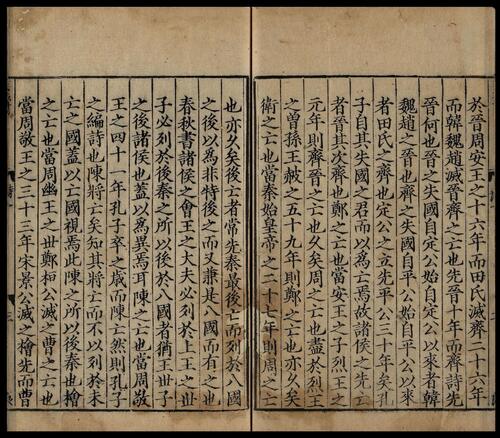 於晉周安王之十六年而田氏滅齊二十六年
而韓魏趙滅晉齊之亡也先晉十年而齊詩先
晉何也晉之失國自定公始自定公以來者韓
魏趙之晉也齊之失國自平公始自平公以來
者田氏之齊也定公之立先平公三十年矣孔
子自其失國之君而以為亡焉故諸侯之先亡
者晉其次齊也鄭之亡也當安王之子烈王之
元年則齊晉之亡也久矣周之亡也盡於烈王
之曾孫王赧之五十九年則鄭之亡也亦久矣
衛之亡也當秦始皇帝之二十七年則周之亡
也亦久矣後亡者常先秦最後亡而列於八國
之後以為非特後之而又兼其八國而有之也
春秋書諸侯之會王之大夫必列於上王之世
子必列於後秦之所以後於八國者猶王世子
之後諸侯也蓋以為異焉耳陳之亡也當周敬
王之四十一年孔子卒之歲而陳亡然則孔子
之編詩也陳將亡矣知其將亡而不以列於未
亡之國蓋以亡國視焉此陳之所以後秦也檜
之亡也當周幽王之世鄭桓公滅之曹之亡也
當周敬王之三十三年宋景公滅之檜先而曹